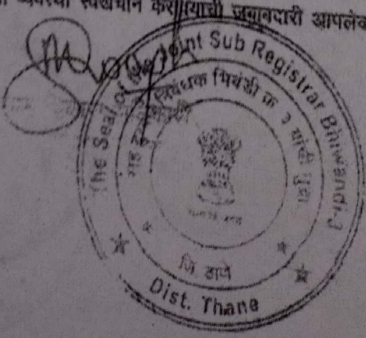 व्यवस्था स्वखर्चाने करण्याची जबाबदारी आपलेक
The Seal of the Joint Sub Registrar Bhiwandi-3
सह दुय्यम निबंधक भिवंडी क्र ३ यांची मुद्रा
जि. ठाणे
Dist. Thane